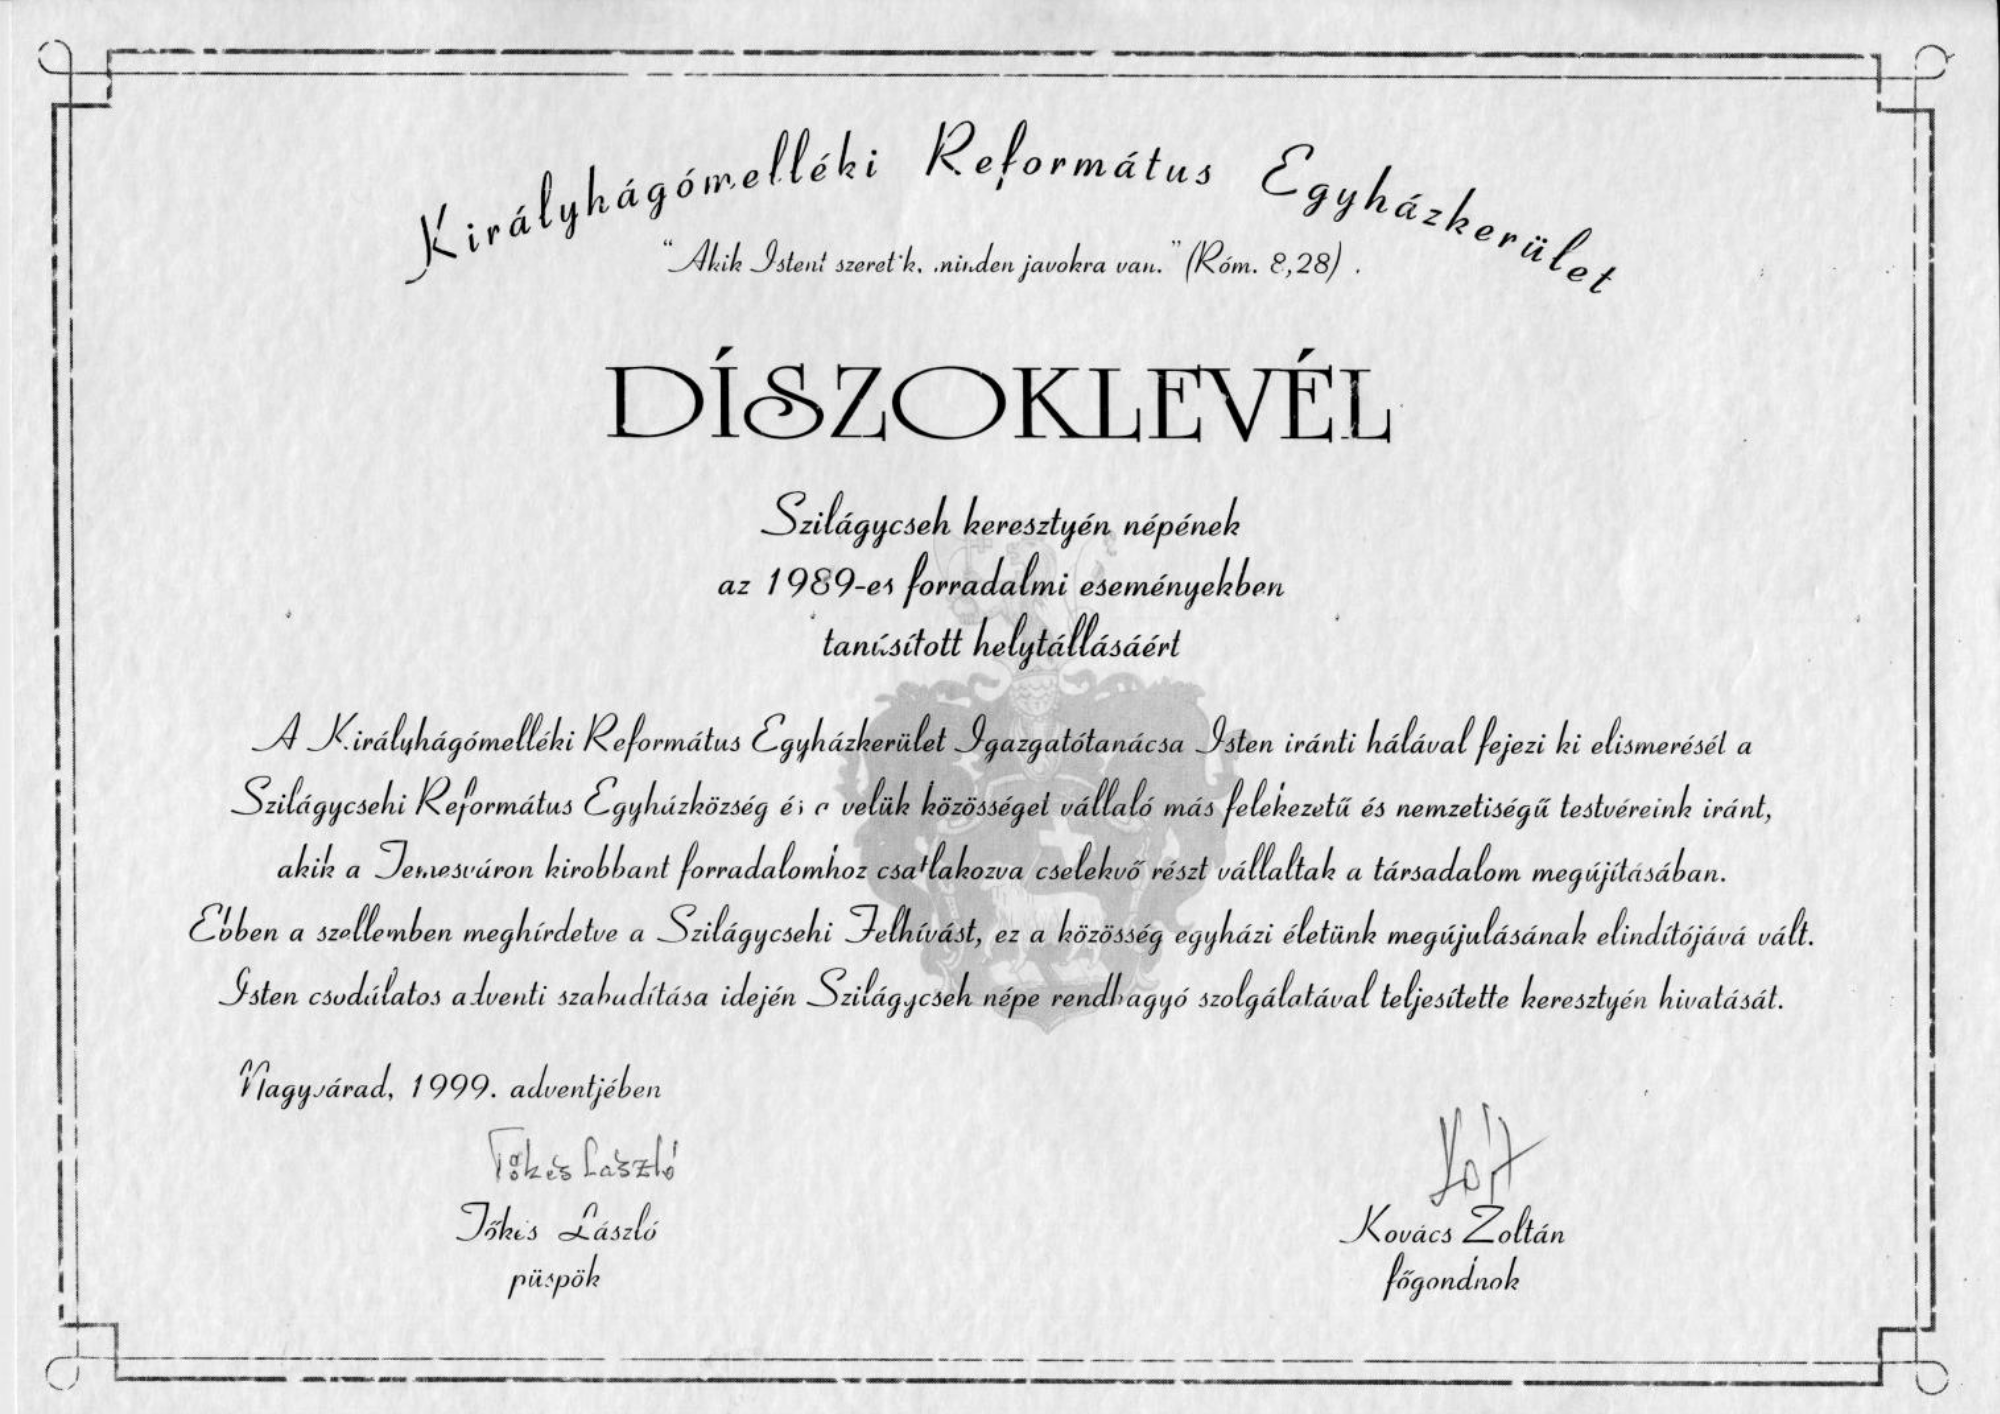 Királyhágómelléki Református Egyházkerület
"Akik Istent szeretik, minden javokra van." (Róm. 8,28)
DÍSZOKLEVÉL
Szilágycseh keresztyén népének
az 1989-es forradalmi eseményekben
tanúsított helytállásáért
A Királyhágómelléki Református Egyházkerület Igazgatótanácsa Isten iránti hálával fejezi ki elismerését a
Szilágycsehi Református Egyházközség és a velük közösséget vállaló más felekezetű és nemzetiségű testvéreink iránt,
akik a Temesváron kirobbant forradalomhoz csatlakozva cselekvő részt vállaltak a társadalom megújításában.
Ebben a szellemben meghírdetve a Szilágycsehi Felhívást, ez a közösség egyházi életünk megújulásának elindítójává vált.
Isten csodálatos adventi szabadítása idején Szilágycseh népe rendhagyó szolgálatával teljesítette keresztyén hivatását.
Nagyvárad, 1999. adventjében
Tőkés László
Tőkés László
püspök
Kovács Zoltán
főgondnok